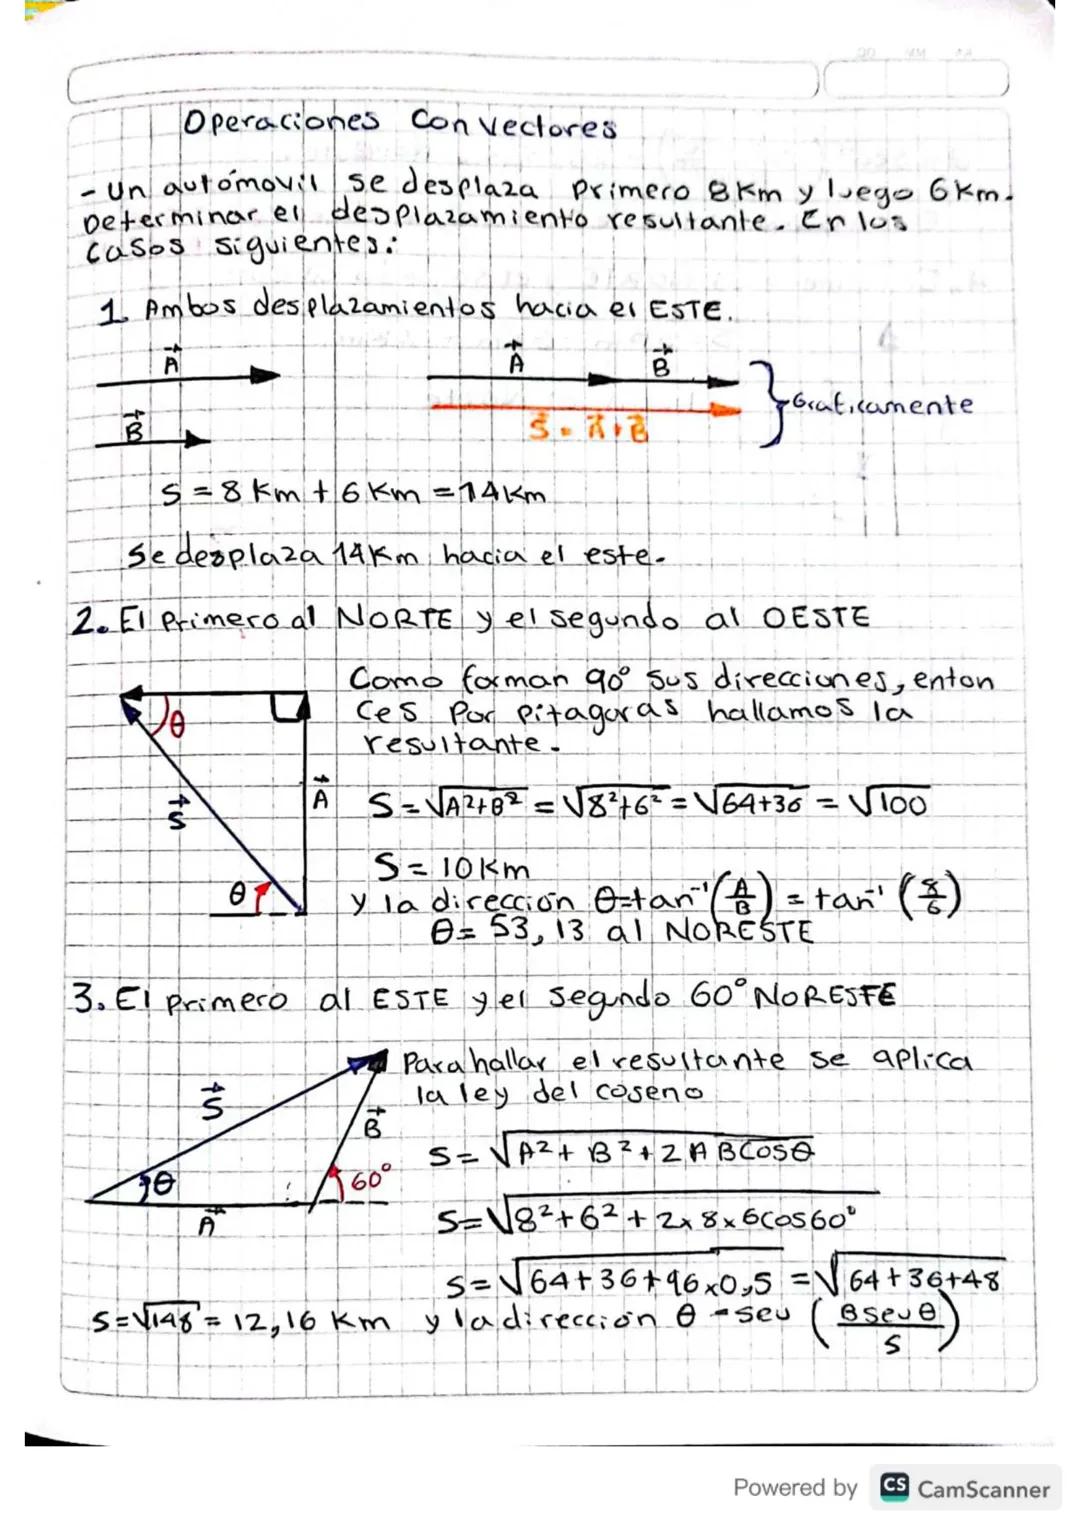 Operaciones Con vectores
- Un automovil se desplaza primero 8 Km y luego 6 Km.
Determinar el desplazamiento resultante. En los
casos siguientes:
1. Ambos desplazamientos hacia el ESTE.
A⃗ A⃗ B⃗
B⃗ S⃗ = A⃗ + B⃗ Graficamente
S = 8 Km + 6 Km = 14 Km
Se desplaza 14 Km hacia el este.
2. El Primero al NORTE y el segundo al OESTE
Como forman 90° sus direcciones, enton
θ ces Por Pitagoras hallamos la
resultante.
S⃗ A⃗ S = √A²+B² = √8²+6² = √64+36 = √100
S = 10 Km
θ y la dirección θ=tan⁻¹(A/B) = tan⁻¹(8/6)
θ= 53,13 al NORESTE
3. El primero al ESTE y el segundo 60° NORESTE
Para hallar el resultante se aplica
S⃗ la ley del coseno
B⃗
S= √A² + B² + 2 A B Cosθ
θ 60°
A⃗ S= √8² + 6² + 2x 8 x 6 Cos 60°
S= √64 + 36 + 96 x 0,5 = √64 + 36 + 48
S=√148 = 12,16 Km y la dirección θ = sen (B sen θ/S)
Powered by CS CamScanner